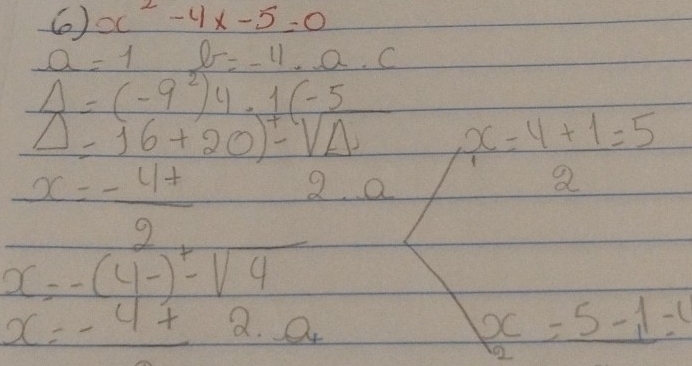 6) x² - 4x - 5 = 0
a = 1 b = -4. a. c
Δ = (-9²)4. 1(-5
Δ = 16 + 20) ± √Δ
x = - 4 +
2 2. a
x = -(4-) ± √4
x = - 4 + 2. a
x₁ = 4 + 1 = 5
2
x₂ = 5 - 1 =